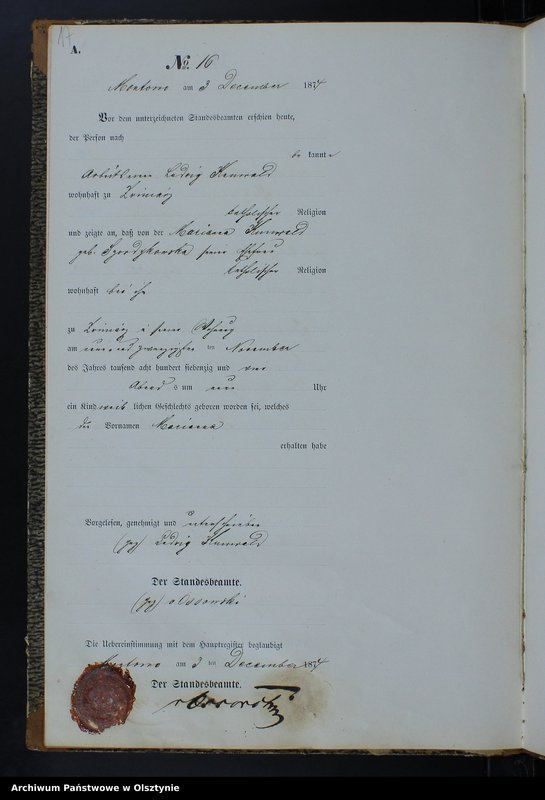 17
A.
No. 16
Montowo am 3 December 1874
Vor dem unterzeichneten Standesbeamten erschien heute,
der Person nach
be kannt
Ludwig Kunwald
wohnhaft zu
katholischer Religion
und zeigte an, daß von der Marianna Kunwald
geb. seine Ehefrau
katholischer Religion
wohnhaft bei ihm
zu in seiner Wohnung
am neun und zwanzigsten ten November
des Jahres tausend acht hundert siebenzig und vier
Abend s um neun Uhr
ein Kind weib lichen Geschlechts geboren worden sei, welches
den Vornamen Marianna
erhalten habe
Vorgelesen, genehmigt und unterschrieben
(gez) Ludwig Kunwald
Der Standesbeamte.
(gez) v Ossowski
Die Uebereinstimmung mit dem Hauptregister beglaubigt
Montowo am 3 ten December 1874
Der Standesbeamte.
v Ossowski
Archiwum Państwowe w Olsztynie